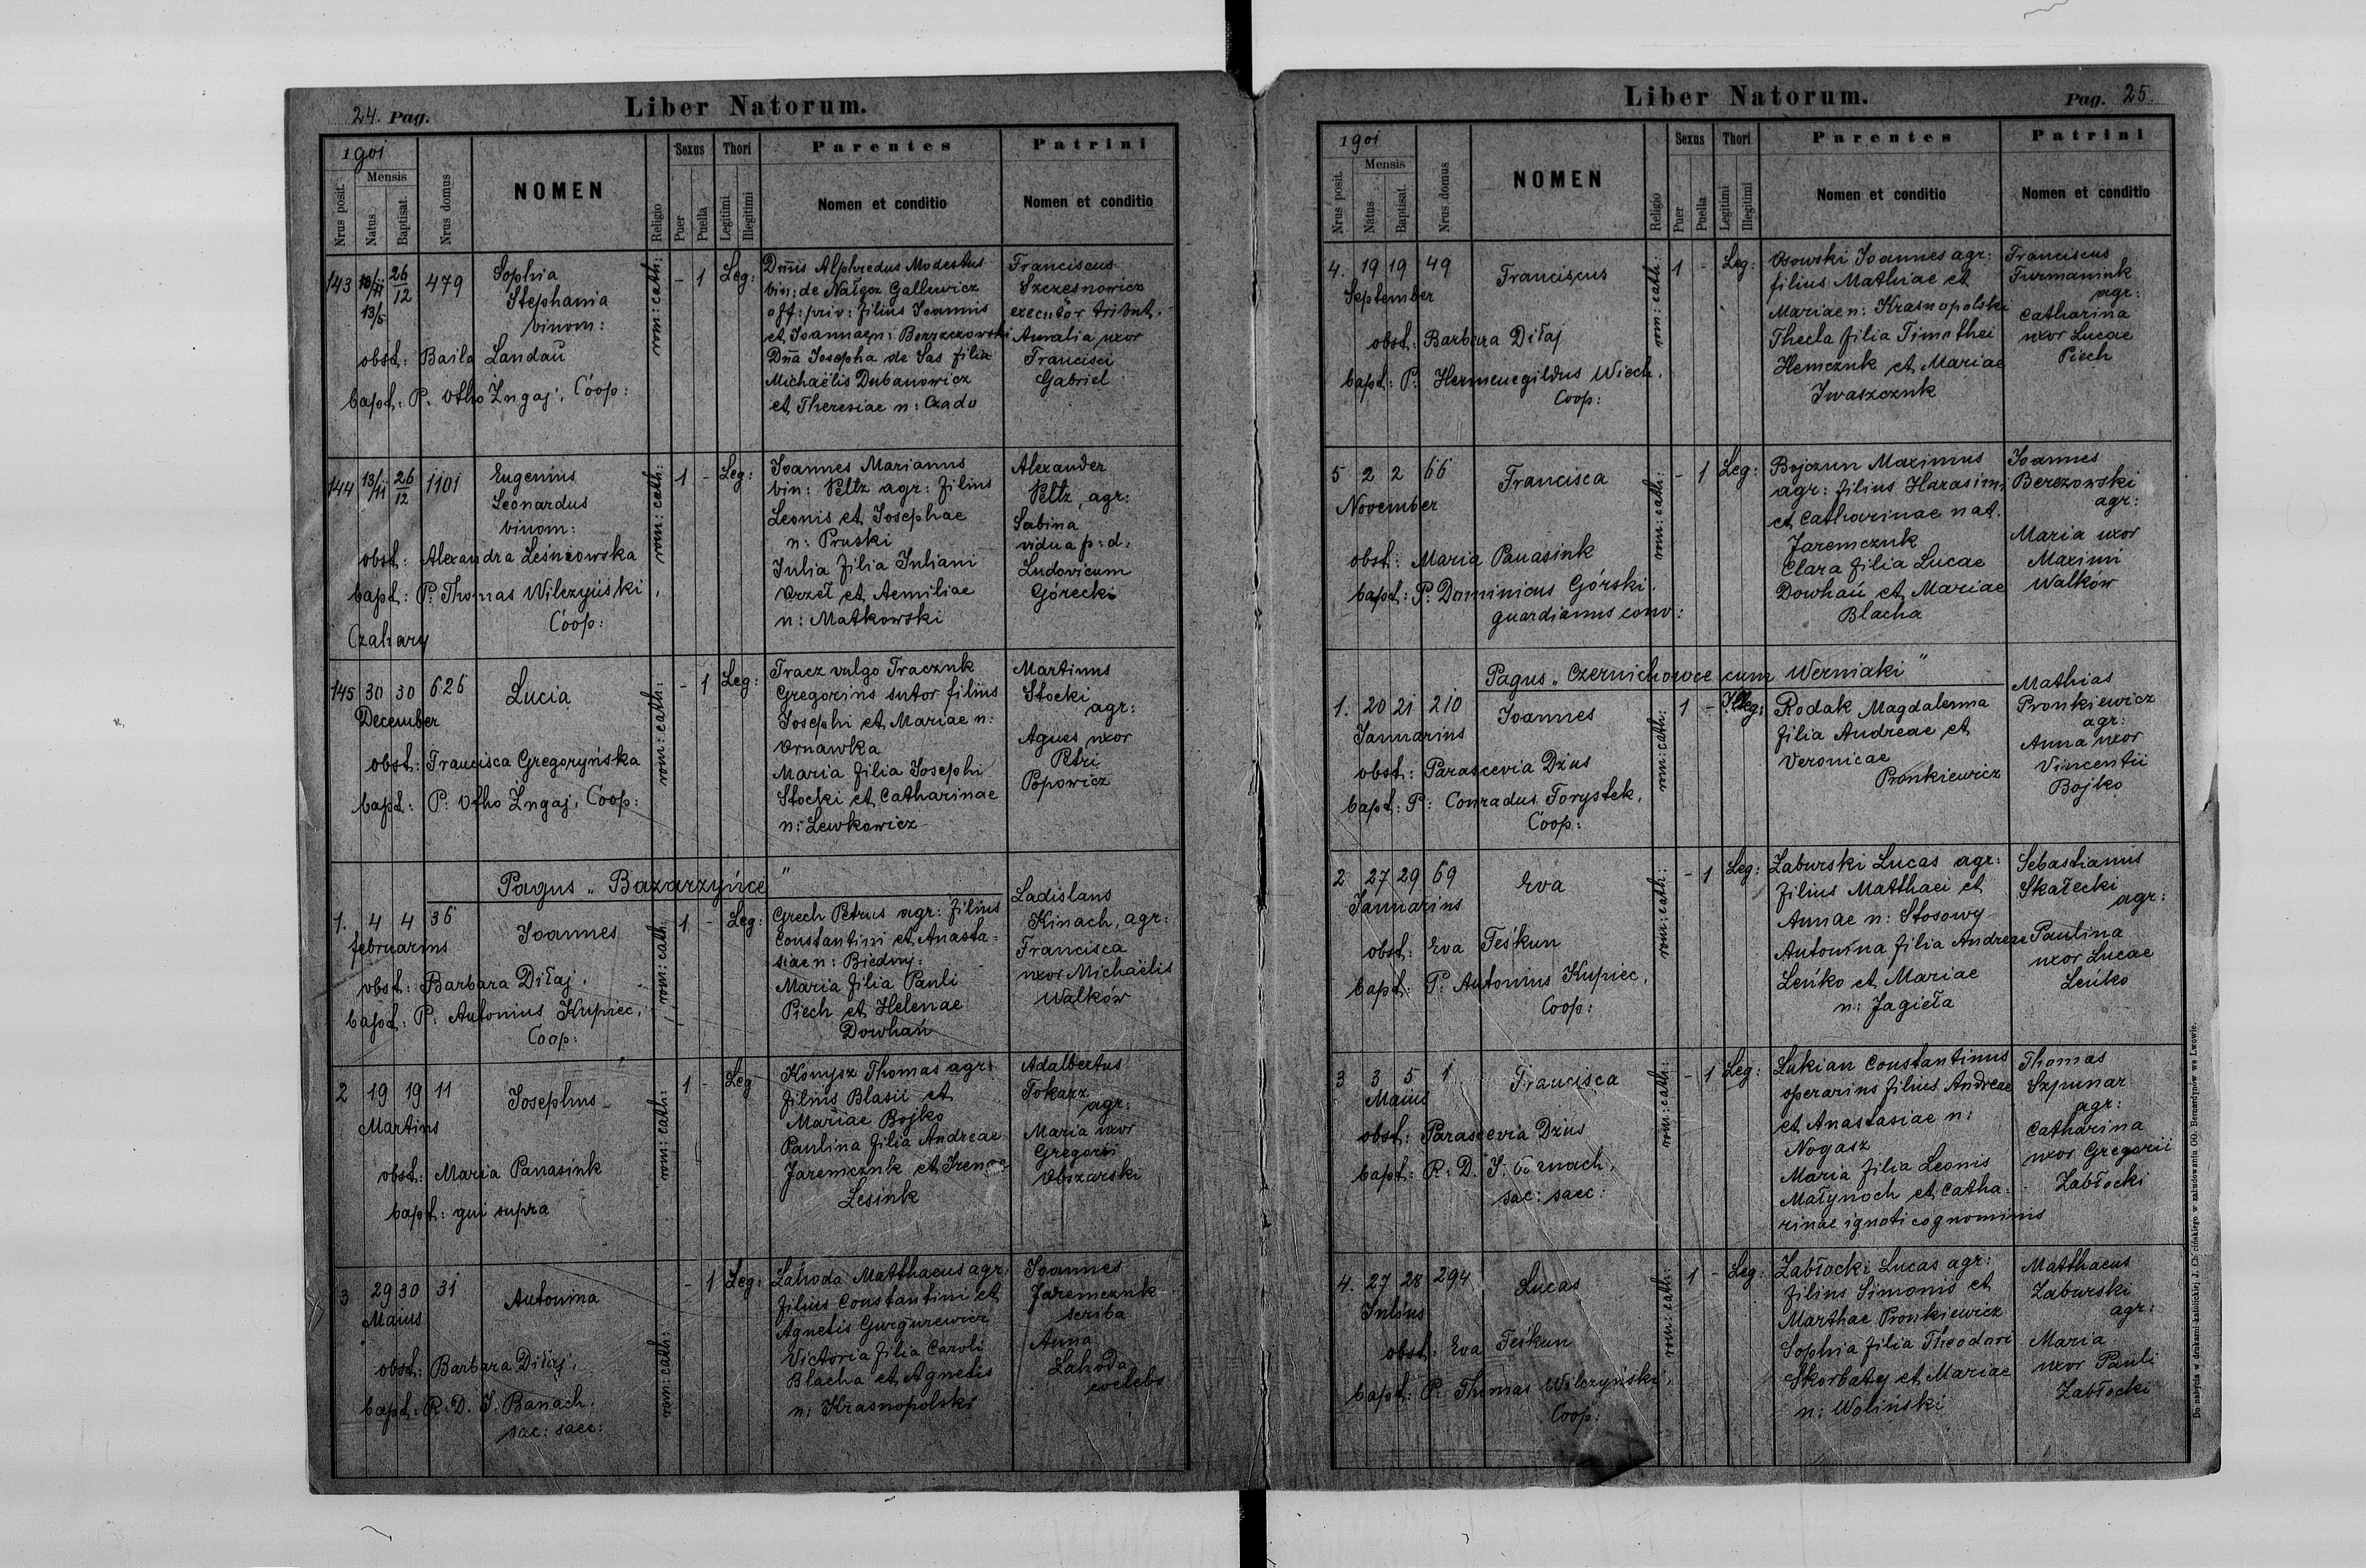 24. Pag.
Liber Natorum.
1901
Nrus posit.
Mensis
Natus
Baptisat.
Nrus domus
NOMEN
Religio
Sexus
Puer
Puella
Thori
Legitimi
Illegitimi
Parentes
Nomen et conditio
Patrini
Nomen et conditio
143 13/11 26/12 479
13/5
Sophia
Stephania
binom:
obst: Baila Landau
bapt: P. Otho Żngaj, Coop:
rom: cath:
- 1 Leg:
Dnus Alphredus Modestus
bin: de Nałęcz Gallewicz
off: priv: filius Joannis
et Joannae n: Borzzezowski
Dna Josepha de Sas filia
Michaëlis Dubanowicz
et Theresiae n: Czado
Franciscus
Szczesnowicz
executor tribut.
Amalia uxor
Francisci
Gabriel
144 13/11 26/12 1101
Eugenius
Leonardus
binom:
obst: Alexandra Leśniowska
bapt: P. Thomas Wilczyński,
Coop:
Czahary
rom: cath:
1 - Leg:
Joannes Marianus
bin: Peltz agr: filius
Leonis et Josephae
n: Pruski
Julia filia Juliani
Orzeł et Aemiliae
n: Matkowski
Alexander
Peltz, agr:
Sabina
vidua p: d:
Ludovicum
Górecki
145 30 30 626
December
Lucia
obst: Francisca Gregoryńska
bapt: P: Otho Żngaj, Coop:
rom: cath:
- 1 Leg:
Tracz vulgo Traczuk
Gregorius sutor filius
Josephi et Mariae n:
Ornawka
Maria filia Josephi
Stocki et Catharinae
n: Lewkowicz
Martinus
Stocki
agr:
Agnes uxor
Petri
Popowicz
Pagus „Bazarzyńce"
1. 4 4 36
februarius
Joannes
obst: Barbara Diłaj,
bapt: P: Antonius Kupiec,
Coop:
rom: cath:
1 - Leg:
Grech Petrus agr: filius
Constantini et Anasta-
siae n: Biedny:
Maria filia Pauli
Piech et Helenae
Dowhań
Ladislaus
Kinach, agr:
Francisca
uxor Michaëlis
Walków
2 19 19 11
Martius
Josephus
obst: Maria Panasiuk
bapt: qui supra
rom: cath:
1 - Leg
Konysz Thomas agr:
filius Blasii et
Mariae Bojko
Paulina filia Andreae
Jaremczuk et Irenae
Lesiuk
Adalbertus
Tokarz
agr:
Maria uxor
Gregorii
Obszarski
3 29 30 31
Maius
Antonina
obst: Barbara Diłaj,
bapt: R. D. J. Banach,
sac: saec:
rom: cath:
- 1 Leg:
Lahoda Matthaeus agr:
filius Constantini et
Agnetis Gurgurewicz
Victoria filia Caroli
Blacha et Agnetis
n: Krasnopolski
Joannes
Jaremczuk
scriba
Anna
Lahoda
coelebs
Liber Natorum.
Pag. 25.
1901
Nrus posit.
Mensis
Natus
Baptisat.
Nrus domus
NOMEN
Religio
Sexus
Puer
Puella
Thori
Legitimi
Illegitimi
Parentes
Nomen et conditio
Patrini
Nomen et conditio
4. 19 19 49
September
Franciscus
obst: Barbara Diłaj
bapt: P: Hermenegildus Wiech,
Coop:
rom: cath:
1 - Leg:
Osowski Joannes agr:
filius Mathiae et
Mariae n: Krasnopolski
Thecla filia Timothei
Hemczuk et Mariae
Iwaszczuk
Franciscus
Furmaniuk
agr:
Catharina
uxor Lucae
Piech
5 2 2 66
November
Francisca
obst: Maria Panasiuk
bapt: P: Dominicus Górski,
guardianus conv:
rom: cath:
- 1 Leg:
Bojczun Maximus
agr: filius Harasimi
et Catharinae nat.
Jaremczuk
Clara filia Lucae
Dowhań et Mariae
Blacha
Joannes
Berezowski
agr:
Maria uxor
Maximi
Walków
Pagus „Czernichowce cum Werniaki"
1. 20 21 210
Januarius
Joannes
obst: Parascevia Dżus
bapt: P: Conradus Forystek,
Coop:
rom: cath:
1 - Illeg:
Rodak Magdalenna
filia Andreae et
Veronicae
Pronkiewicz
Mathias
Pronkiewicz
agr:
Anna uxor
Vincentii
Bojko
2 27 29 69
Januarius
Eva
obst: Eva Teśkun
bapt: P. Antonius Kupiec,
Coop:
rom: cath:
- 1 Leg:
Zaburski Lucas agr:
filius Matthaei et
Annae n: Stosowy
Antonina filia Andreae
Leńko et Mariae
n: Jagieła
Sebastianus
Skałecki
agr:
Paulina
uxor Lucae
Leńko
3 3 5 1
Maius
Francisca
obst: Parascevia Dżus
bapt: R. D. J.
sac: saec:
rom: cath:
- 1 Leg:
Lukian Constantinus
operarius filius Andreae
et Anastasiae n:
Nogasz
Maria filia Leonis
Małynoch et Catha-
rinae ignoti cognominis
Thomas
Szpunar
agr:
Catharina
uxor Gregorii
Zabłocki
4. 27 28 294
Julius
Lucas
obst: Eva Teśkun
bapt: P. Thomas Wilczyński,
Coop:
rom: cath:
1 - Leg:
Zabłocki Lucas agr:
filius Simonis et
Marthae Pronkiewicz
Sophia filia Theodori
Skorbaty et Mariae
n: Woliński
Matthaeus
Zaburski
agr:
Maria
uxor Pauli
Zabłocki
Do nabycia w drukarni katolickiej J. Chęcińskiego w zabudowaniu OO. Bernardynów we Lwowie.